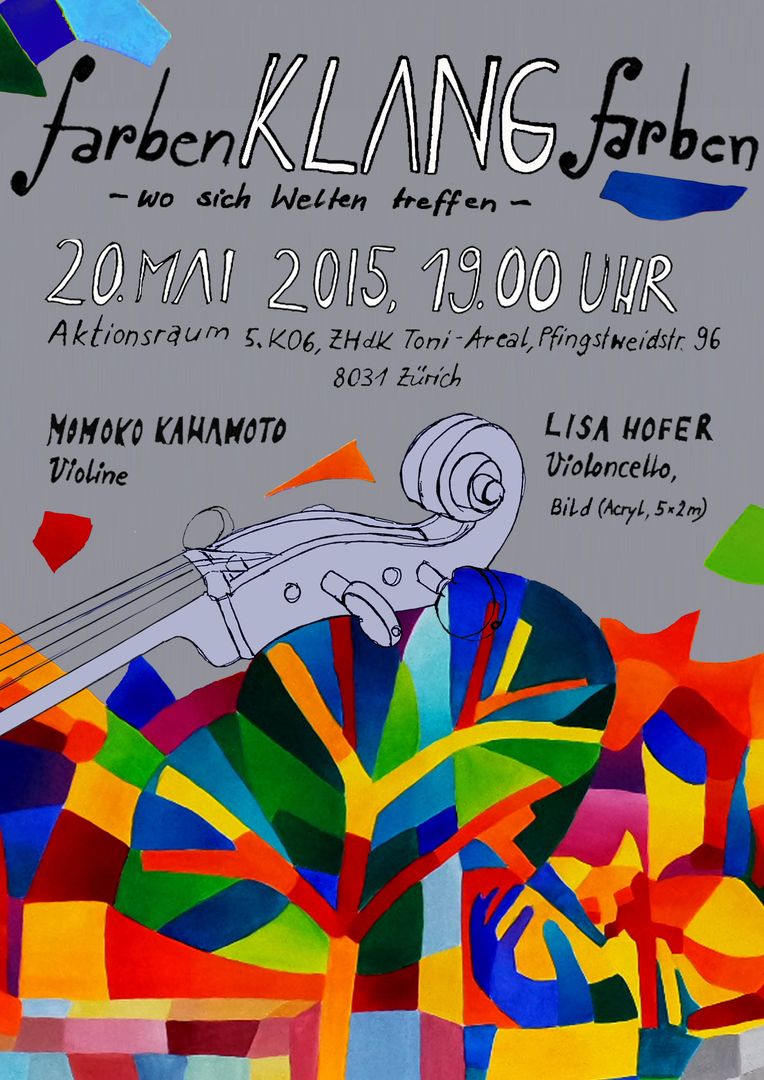 farbenKLANGfarben
- wo sich Welten treffen -
20. MAI 2015, 19.00 UHR
Aktionsraum 5.K06, ZHdK Toni-Areal, Pfingstweidstr. 96
8031 Zürich
MOMOKO KAWAMOTO
Violine
LISA HOFER
Violoncello,
Bild (Acryl, 5×2m)